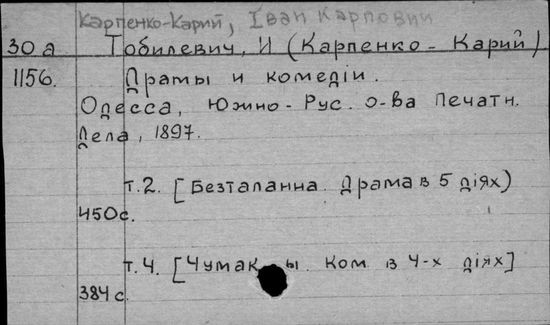 Карпенко-Карий, Іван Карпович
30 а Тобилевич, И (Карпенко - Карий)
1156. Драмы и комедіи.
Одесса, Южно-Рус. о-ва Печатн.
Дела, 1897.
т.2. [Безталанна. Драма в 5 діях)
450с.
т.4. [Чумак ы. Ком. в 4-х діях]
384 с.